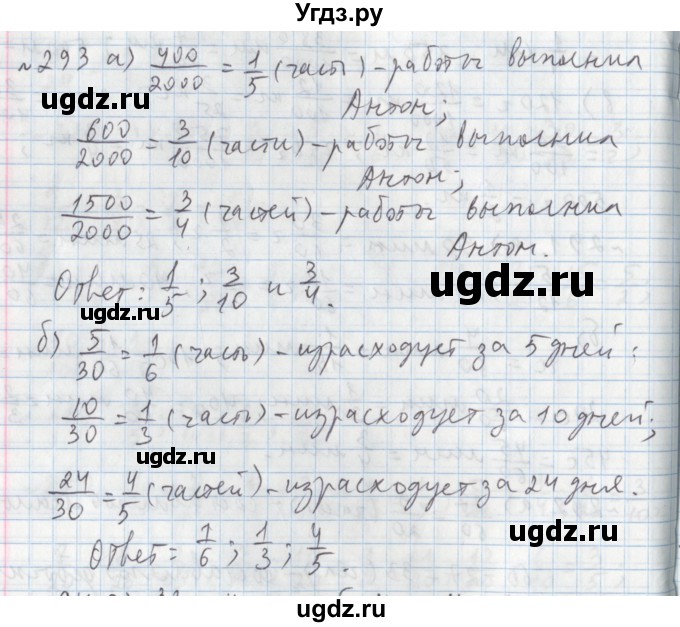 Угдз.ру
№293 а) 400/2000 = 1/5 (часть) – работы выполнил
Антон;
ugdz.ru
ugdz.ru
600/2000 = 3/10 (части) – работы выполнил
Антон;
1500/2000 = 3/4 (частей) – работы выполнил
Антон.
Ответ: 1/5; 3/10 и 3/4.
ugdz.ru
б) 5/30 = 1/6 (часть) – израсходует за 5 дней:
10/30 = 1/3 (часть) – израсходует за 10 дней;
ugdz.ru
24/30 = 4/5 (частей) – израсходует за 24 дня.
ugdz.ru
Ответ: 1/6; 1/3; 4/5.
ugdz.ru
ugdz.ru